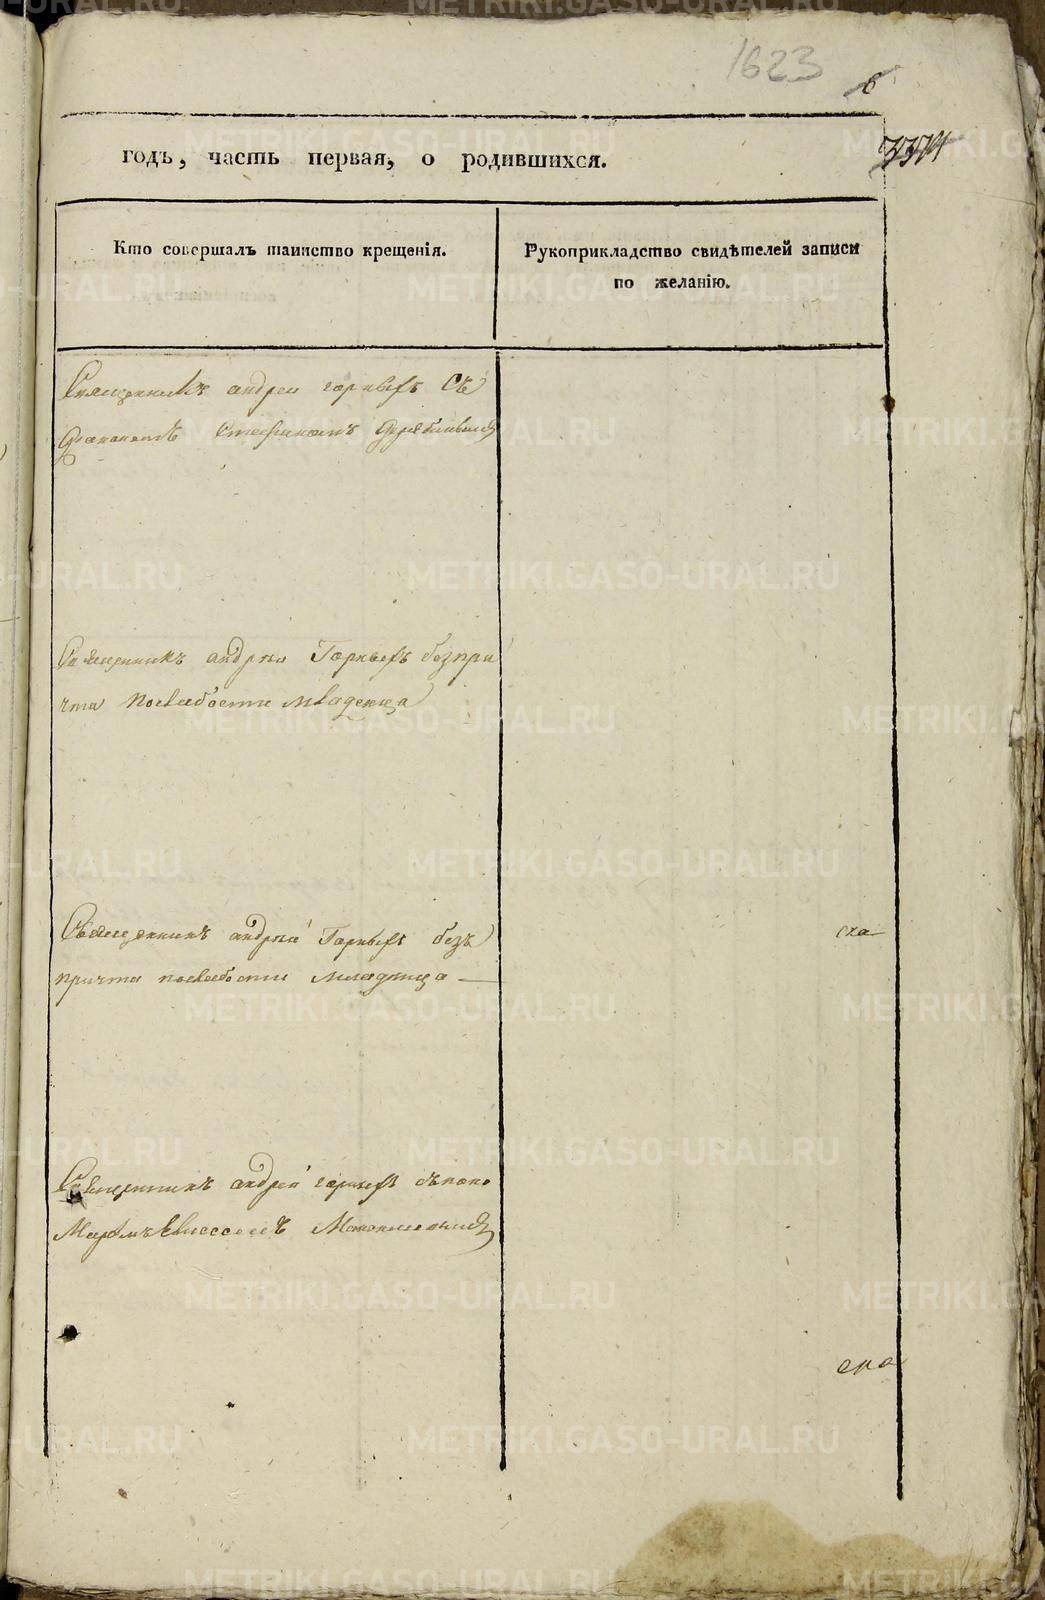 1623
6
годъ, часть первая, о родившихся.
Кто совершалъ таинство крещенія.
Рукоприкладство свидѣтелей записи
по желанію.
Священникъ андреи горныхъ Съ
Диакономъ Стефаномъ
Священникъ андреи Горныхъ безпри
чта Послабости младенца
Священникъ андреи Горныхъ безъ
причта послабости младенца
Священникъ андреи горныхъ съпоно
Маремъ
METRIKI.GASO-URAL.RU